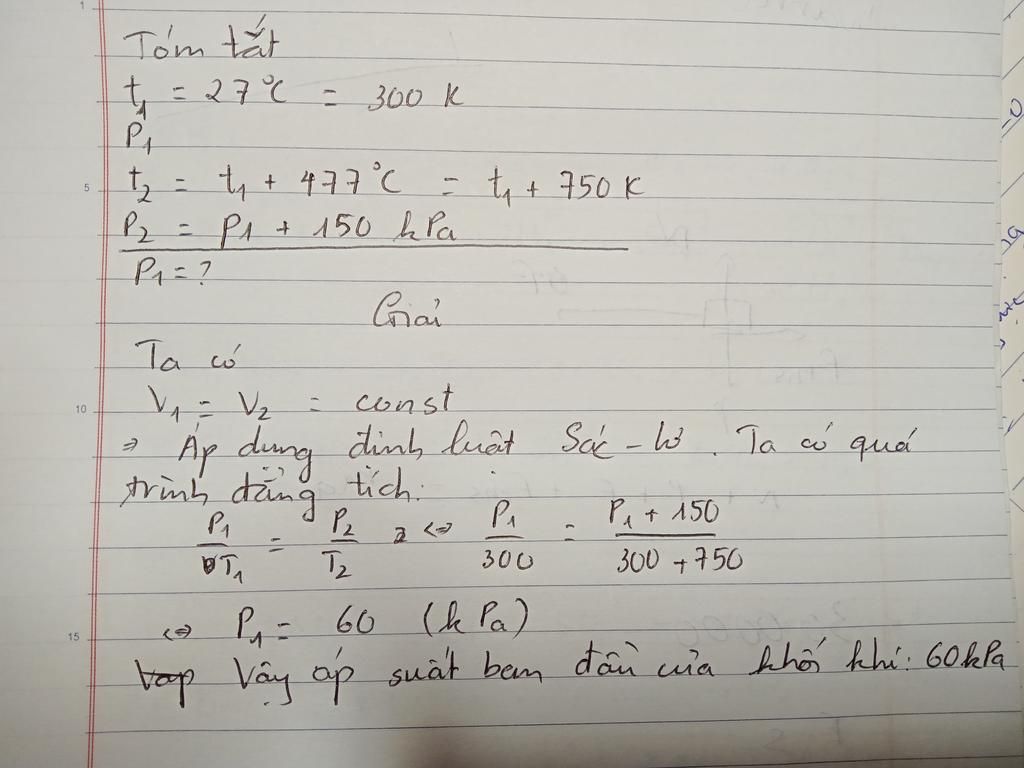 1
Tóm tắt
t₁ = 27°C = 300 K
P₁
5
t₂ = t₁ + 477°C = t₁ + 750 K
P₂ = P₁ + 150 kPa
P₁ = ?
Giải
Ta có
10
V₁ = V₂ = const
⇒ Áp dụng định luật Sác-lơ. Ta có quá
trình đẳng tích:
P₁/T₁ = P₂/T₂ ⇔ P₁/300 = (P₁ + 150)/(300 + 750)
15
⇔ P₁ = 60 (kPa)
Vậy áp suất ban đầu của khối khí: 60kPa